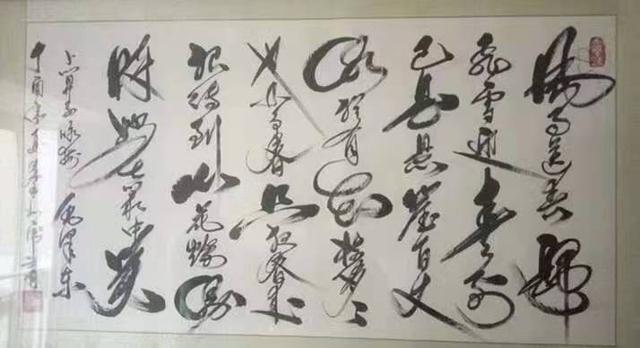 风雨送春归
飞雪迎春到
已是悬崖百丈
冰犹有花枝俏〻
也不争春只把春来
报待到山花烂漫
时她在丛中笑
卜算子咏梅 毛泽东
丁酉年夏